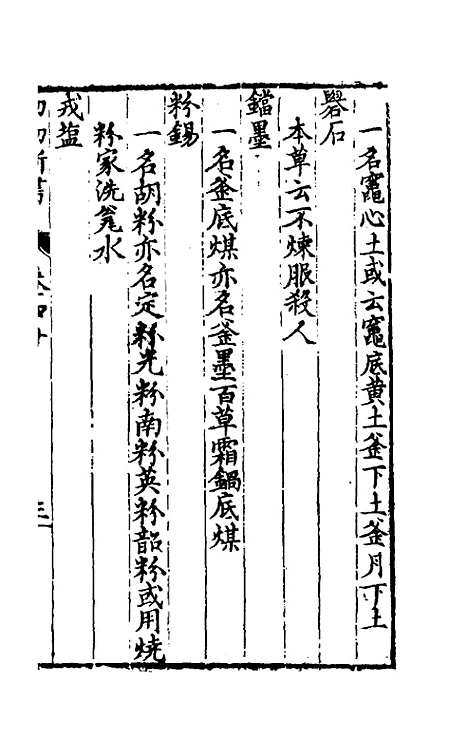 一名竈心土或云竈底黄土釜下土釜月下土
礜石
本草云不煉服殺人
鐺墨
一名釜底煤亦名釜墨百草霜鍋底煤
粉錫
一名胡粉亦名定粉光粉南粉英粉韶粉或用燒
粉家洗瓮水
戎塩